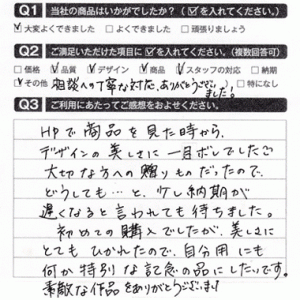 Q1 当社の商品はいかがでしたか?(✓を入れてください。)
☑大変よくできました □よくできました □頑張りましょう
Q2 ご満足いただけた項目に✓を入れてください。(複数回答可)
□価格 ☑品質 ☑デザイン ☑商品 ☑スタッフの対応 □納期
☑その他 相談への丁寧な対応、ありがとうございました! □特になし
Q3 ご利用にあたってご感想をおよせください。
HPで商品を見た時から、
デザインの美しさに一目ボレでした♡
大切な方への贈りものだったので、
どうしても…と、少し納期が
遅くなると言われても待ちました。
初めての購入でしたが、美しさに
とてもひかれたので、自分用にも
何か特別な記念の品にしたいです。
素敵な作品をありがとうございます!